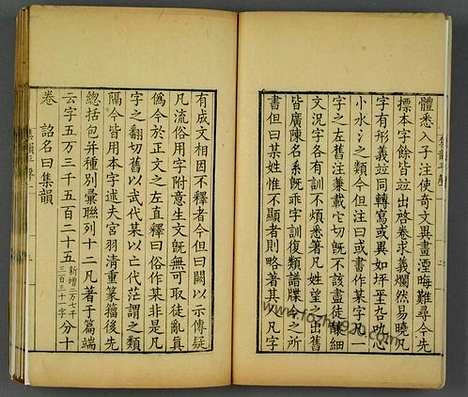 體悉入子注使奇文異畫湮晦難尋今先
標本字餘皆並出啓卷求義爛然易曉凡
字有形義並同轉寫或異如坪心
小水氵之類今但注曰或書作某字凡一
字之左舊注兼載它切旣不該盡徒釀細
文況字各有訓不煩悉著凡姓望之出舊
皆廣陳名系旣乖字訓復類譜牒今之所
書但曰某姓惟不顯者則略著其人凡字
有成文相因不釋者今但曰闕以示傳疑
凡流俗用字附意生文旣無可取徒亂眞
僞今於正文之左直釋曰俗作某非是凡
字之翻切舊以武代某以亡代茫謂之類
隔今皆用本字述夫宮羽清重篆籀後先
總括包并種別彙聯列十二凡著于篇端
云字五万三千五百二十五新增二万七千三百三十一字分十
卷 詔名曰集韻